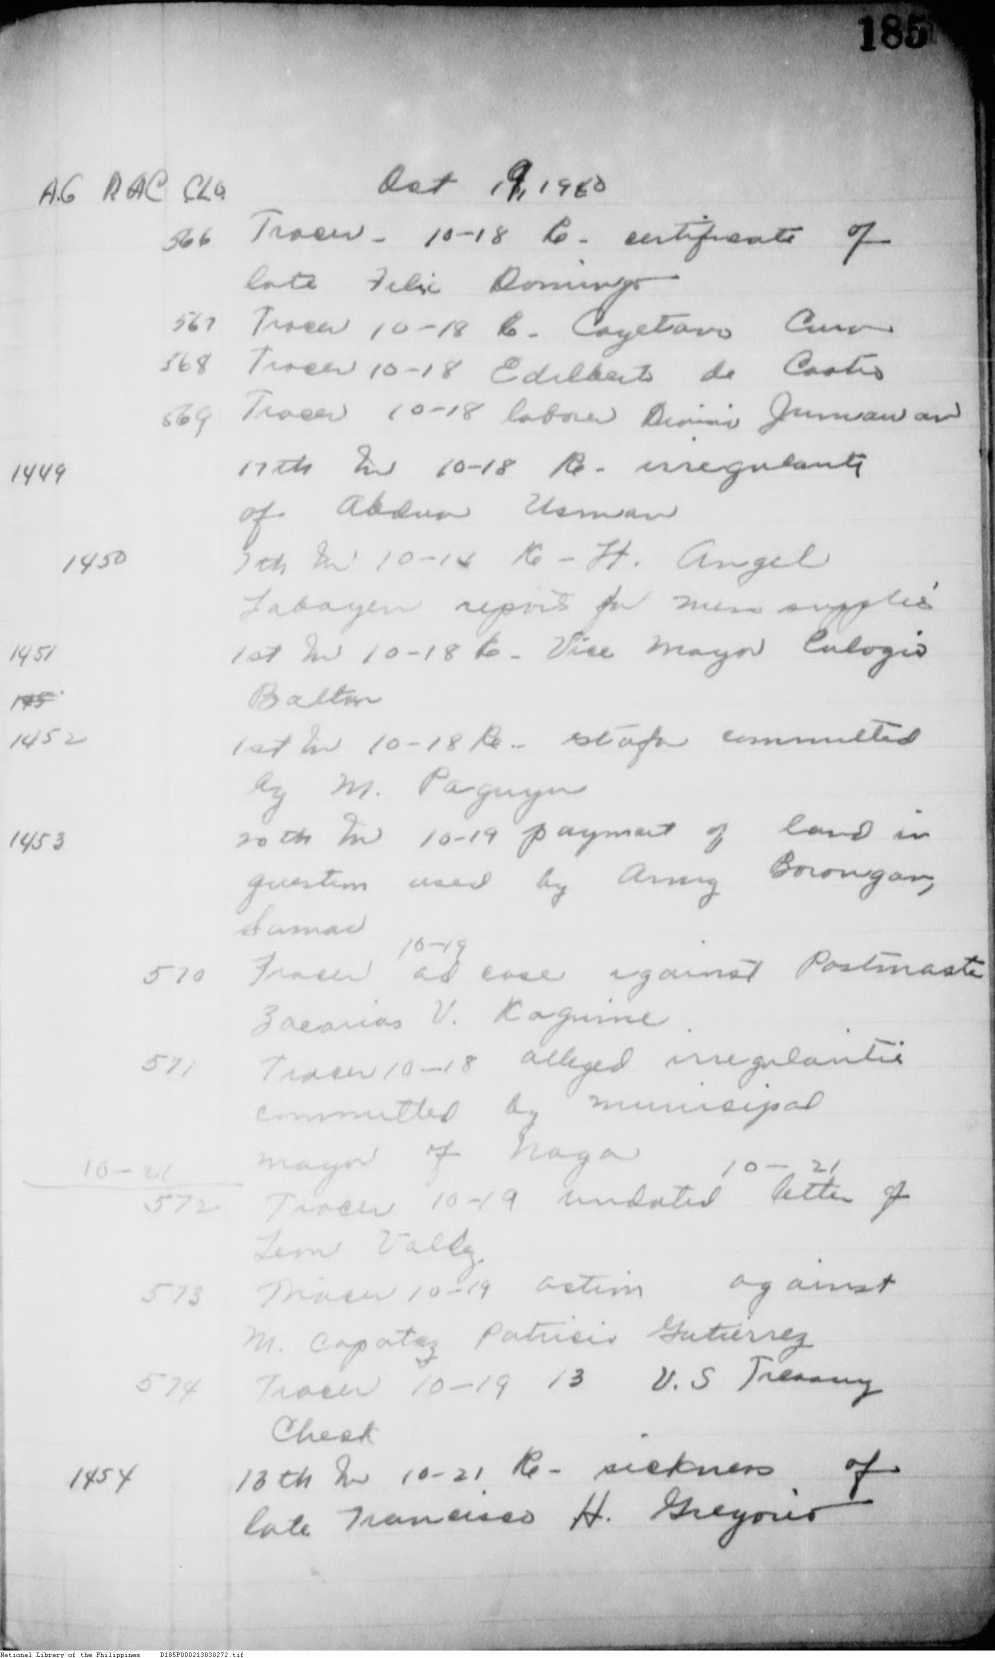 185
AG RAC CLG Oct 19, 1950
566 Tracer - 10-18 Re - certificate of
late Felix Domingo
567 Tracer 10-18 Re - Cayetano
568 Tracer 10-18 Edilberto de Castro
569 Tracer 10-18 laborer Jumawan
1449 17th In 10-18 Re - irregularity
of Usman
1450 7th In 10-14 Re - H. Angel
Labayen reports for mess supplies
1451 1st In 10-18 Re - Vice Mayor Eulogio
145
Baltar
1452 1st In 10-18 Re - estafa committed
by M. Paguyu
1453 20th In 10-19 payment of land in
question used by Army Borongan,
Samar
10-19
570 Tracer ad case against Postmaste
Zacarias V. Kaguine
571 Tracer 10-18 alleged irregularitie
committed by municipal
mayor of Naga
10-21 10-21
572 Tracer 10-19 undated letter of
Leon Valdez
573 Tracer 10-19 action against
M. Capataz Patricio Gutierrez
574 Tracer 10-19 13 U.S Treasury
Check
1454 13th In 10-21 Re - sickness of
late Francisco H. Gregorio
National Library of the Philippines D185P000213838272.tif